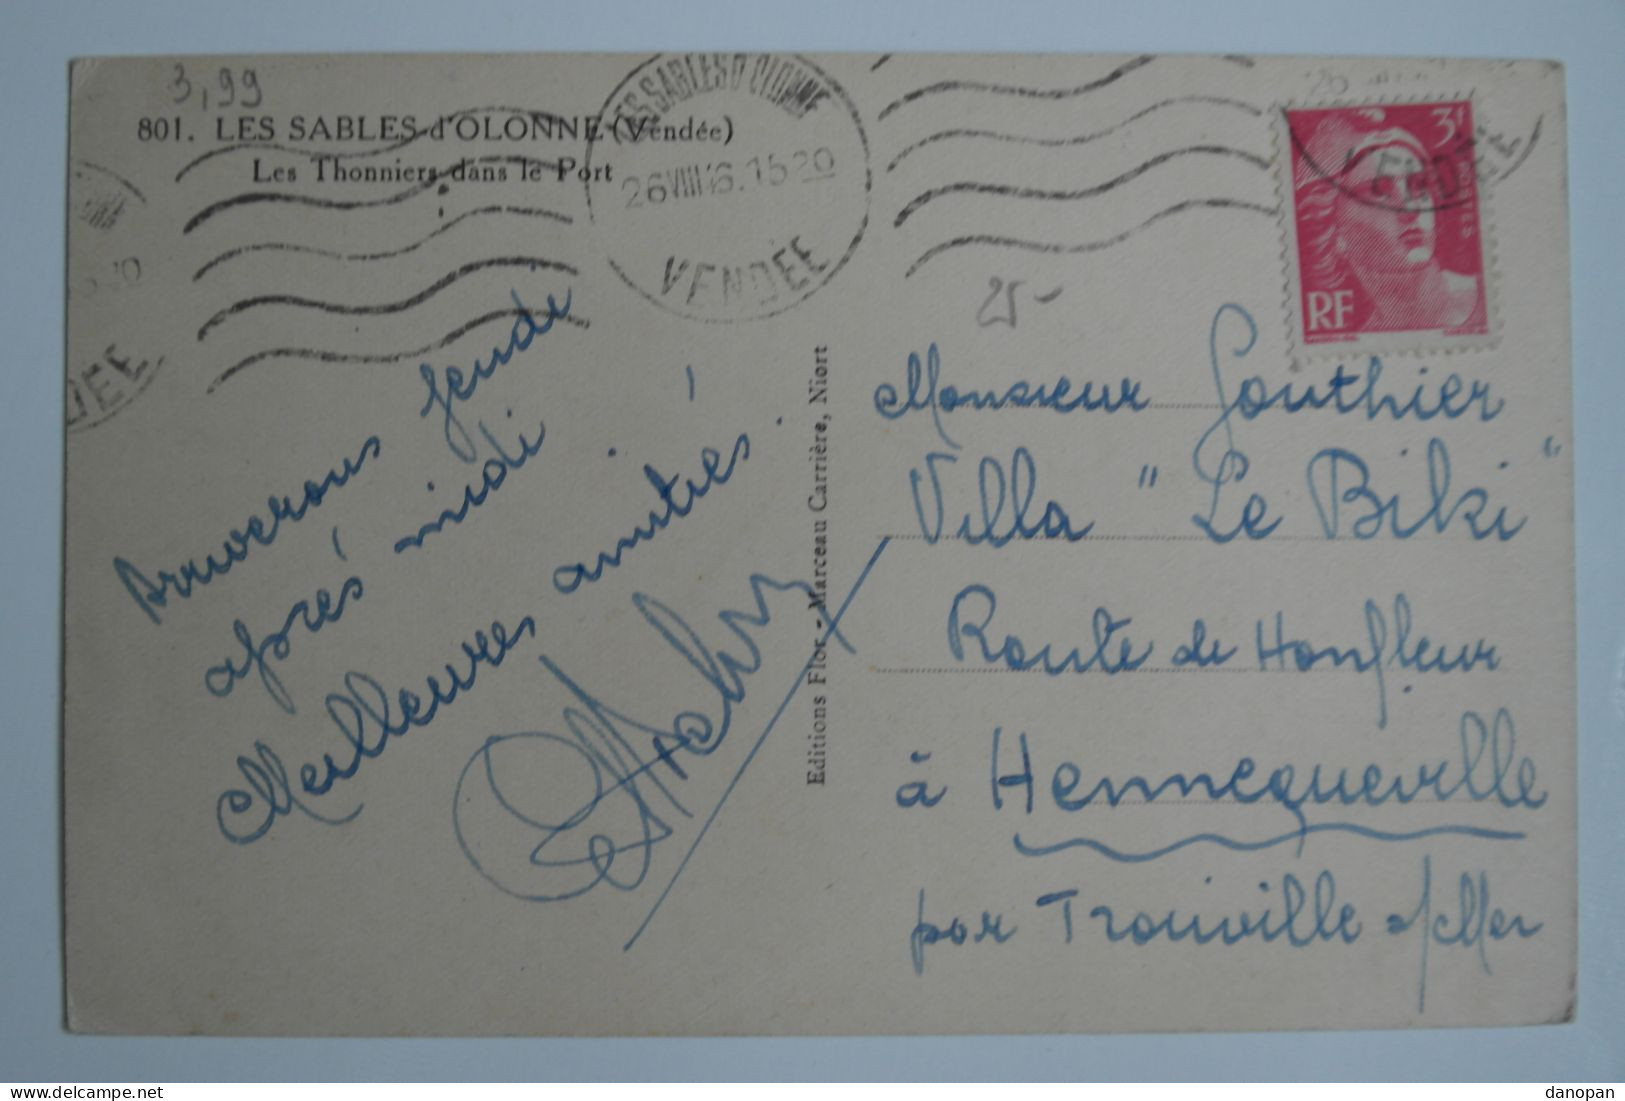 3,99
801. LES SABLES-d'OLONNE (Vendée)
Les Thonniers dans le Port
LES SABLES D'OLONNE
15 20
VENDÉE
VENDÉE
3F
POSTES
RF
25-
Arriverons jeudi
après midi.
Meilleures amitiés !
Editions Flor - Marceau Carrière, Niort
Monsieur Gouthier
Villa "Le Biki"
Route de Honfleur
à Hennequeville
par Trouville s/Mer
delcampe.net
danopan